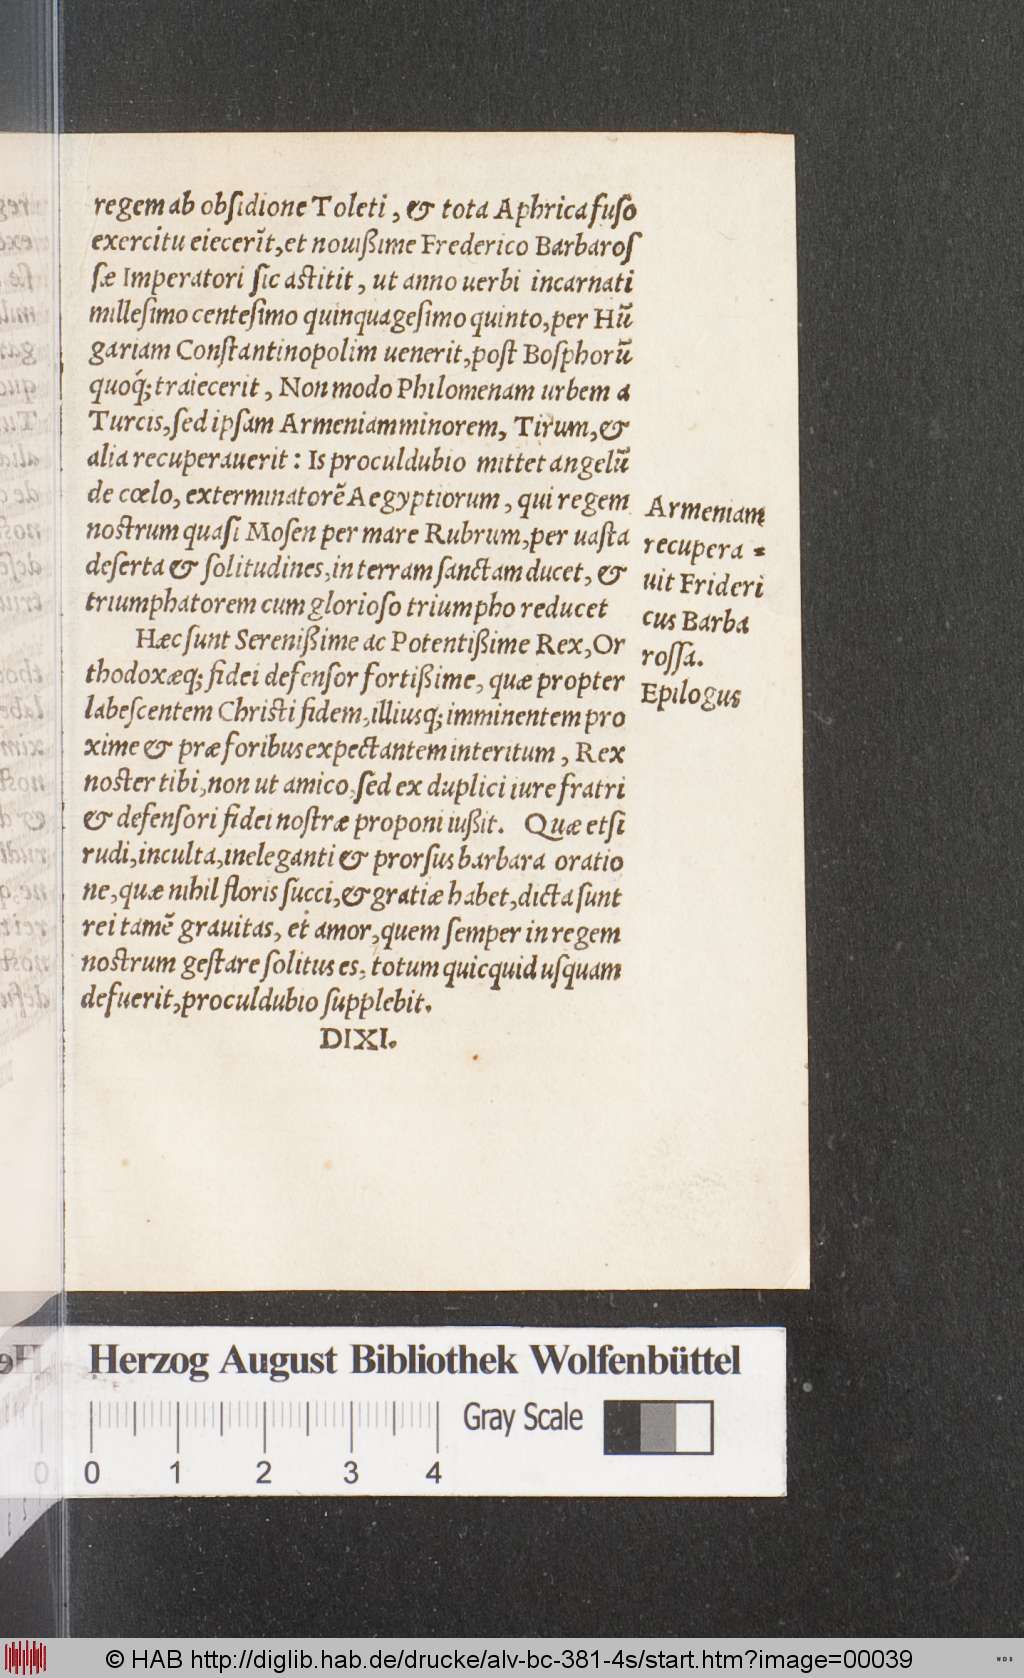 regem ab obſidione Toleti, & tota Aphrica fuſo
exercitu eiecerīt, et nouißime Frederico Barbaroſ
ſæ Imperatori ſic aſtitit, ut anno uerbi incarnati
milleſimo centeſimo quinquageſimo quinto, per Hū
gariam Conſtantinopolim uenerit, poſt Boſphorū
quoq́; traiecerit, Non modo Philomenam urbem a
Turcis, ſed ipſam Armeniam minorem, Tirum, &
alia recuperauerit: Is proculdubio mittet angelū
de cœlo, exterminatorē Aegyptiorum, qui regem
noſtrum quaſi Moſen per mare Rubrum, per uaſta
deſerta & ſolitudines, in terram ſanctam ducet, &
triumphatorem cum glorioſo triumpho reducet
Armeniam
recupera =
uit Frideri
cus Barba
roſſa.
Hæc ſunt Sereniſßime ac Potentißime Rex, Or
thodoxæq; fidei defenſor fortißime, quæ propter
labeſcentem Chriſti fidem, illiusq; imminentem pro
xime & præ foribus expectantem interitum, Rex
noſter tibi, non ut amico, ſed ex duplici iure fratri
& defenſori fidei noſtræ proponi iußit. Quæ etſi
rudi, inculta, ineleganti & prorſus barbara oratio
ne, quæ nihil floris ſucci, & gratiæ habet, dicta ſunt
rei tamē grauitas, et amor, quem ſemper in regem
noſtrum geſtare ſolitus es, totum quicquid uſquam
defuerit, proculdubio ſupplebit.
Epilogus
DIXI.
Herzog August Bibliothek Wolfenbüttel
Gray Scale
0 1 2 3 4
© HAB http://diglib.hab.de/drucke/alv-bc-381-4s/start.htm?image=00039